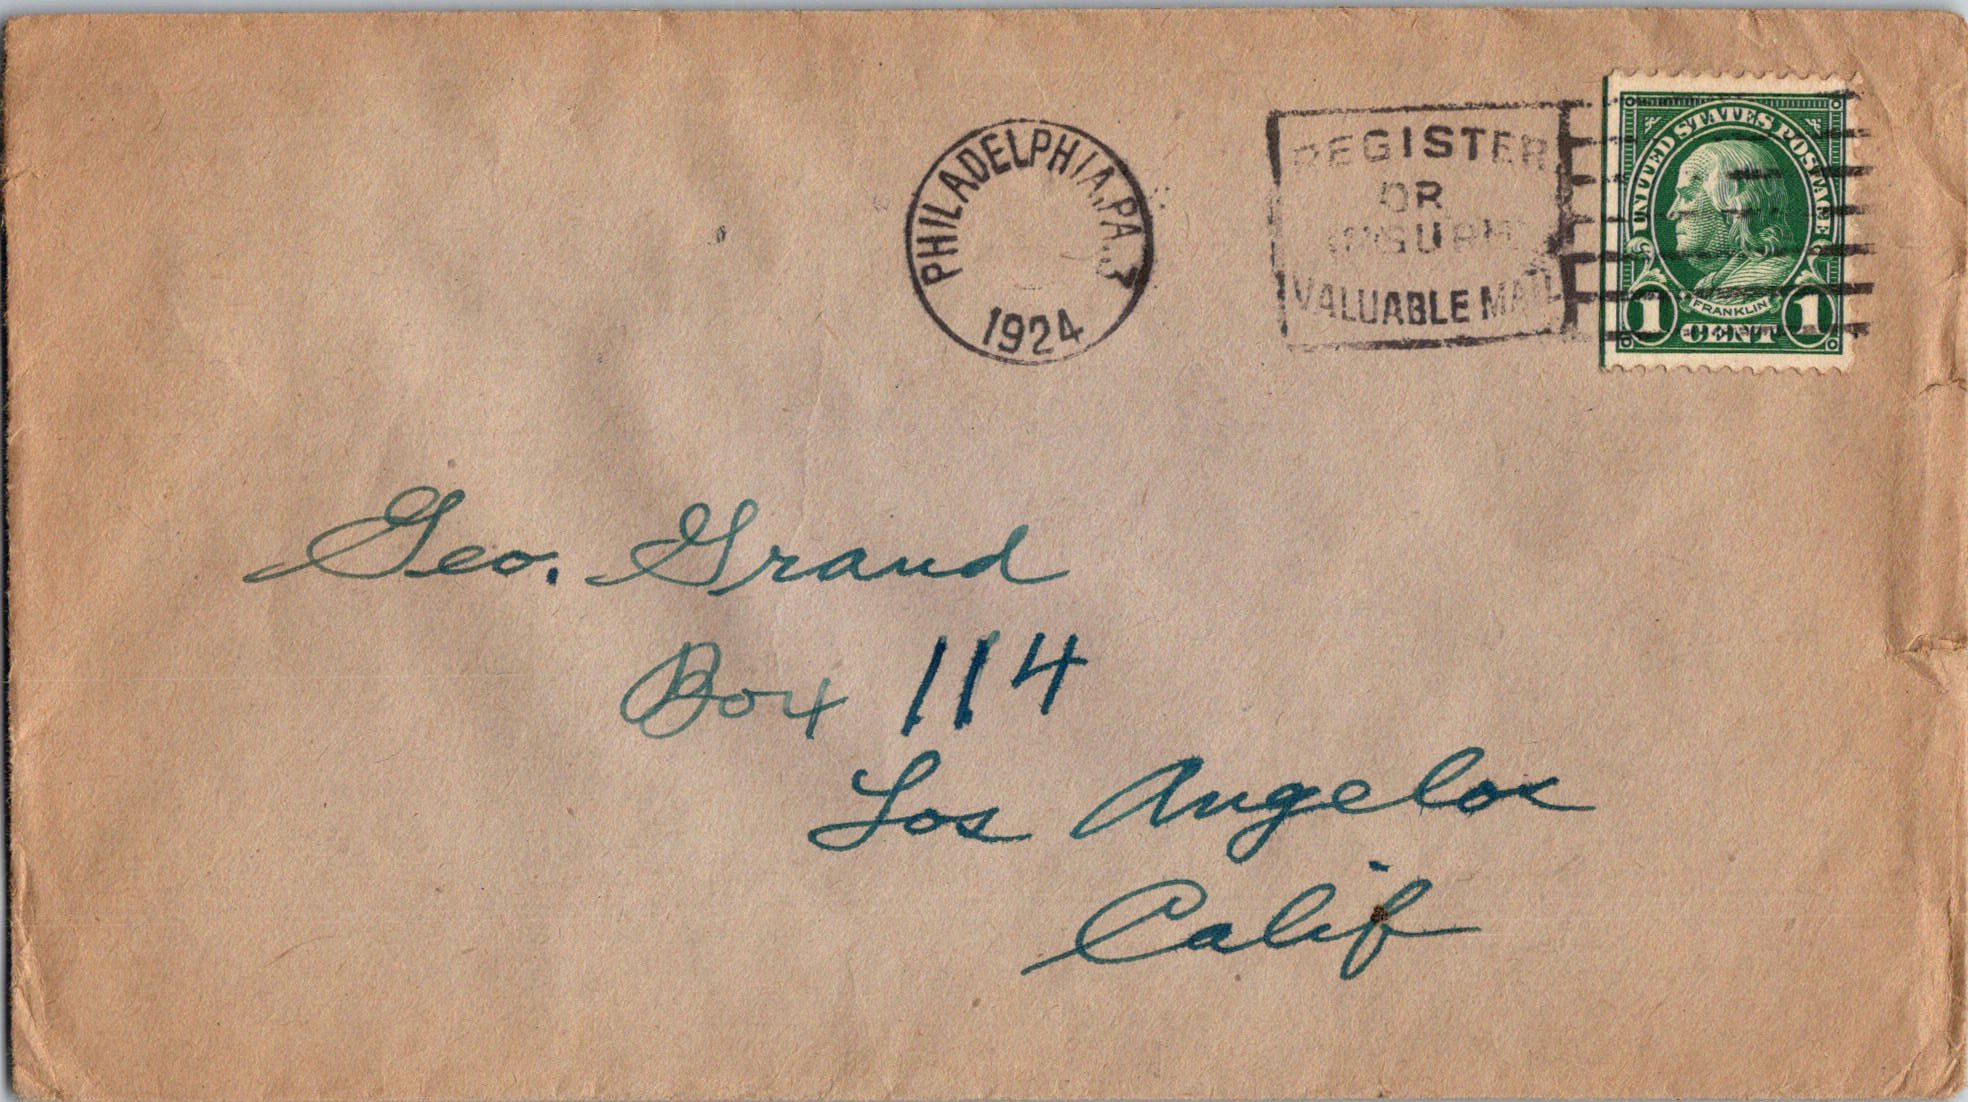 PHILADELPHIA, PA. 3
1924
REGISTER
OR
INSURE
VALUABLE MAIL
UNITED STATES POSTAGE
FRANKLIN
1 CENT 1
Geo. Grand
Box 114
Los Angelos
Calif